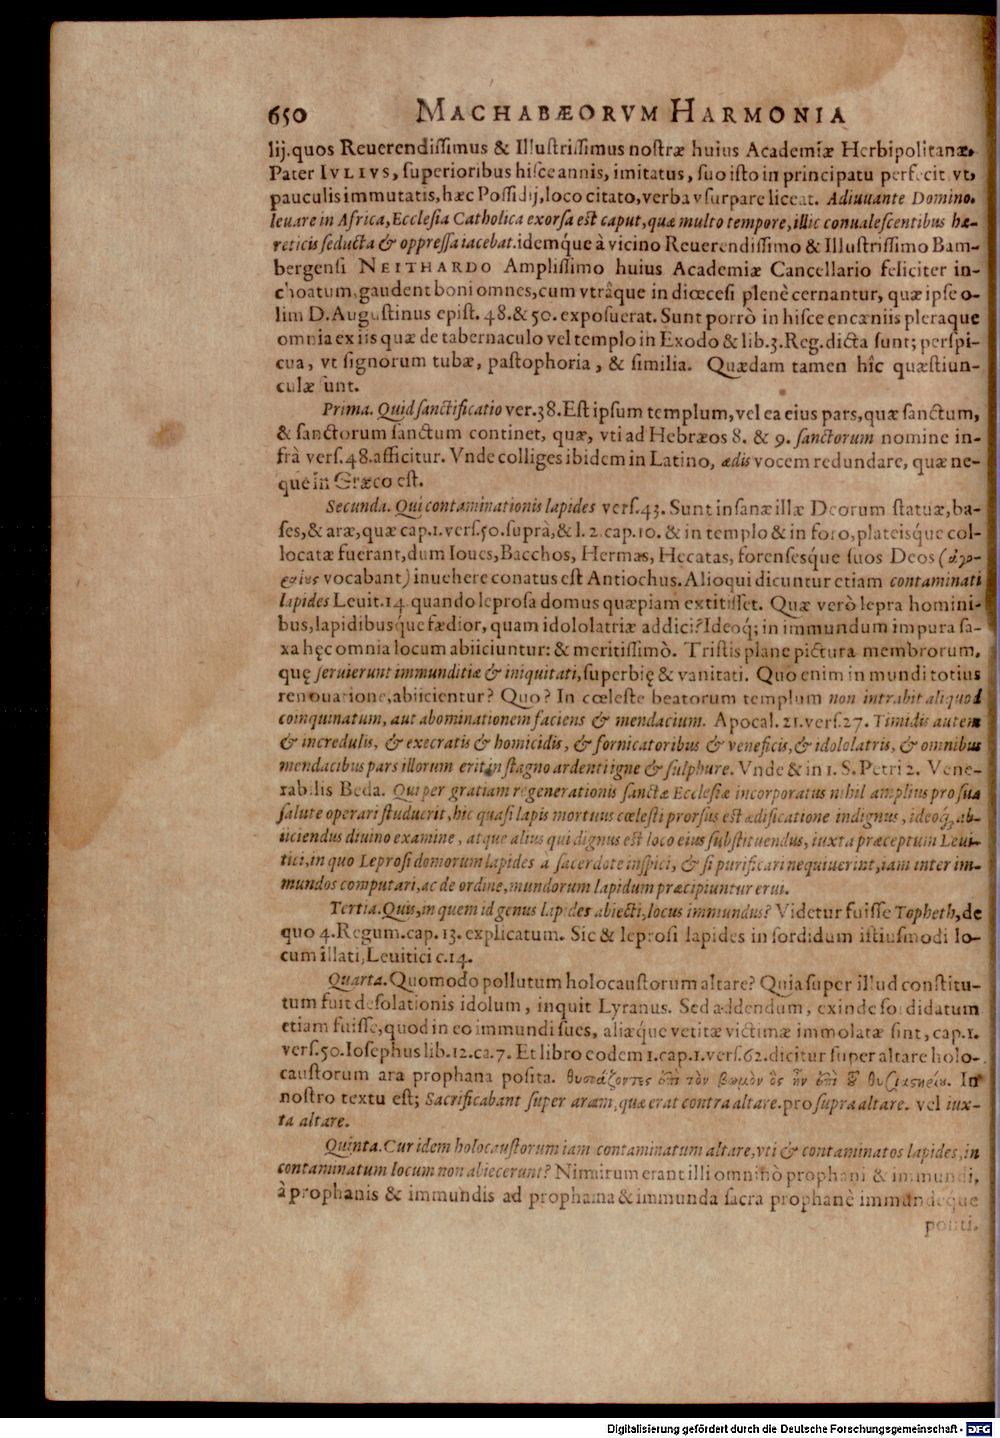 650 MACHABÆORVM HARMONIA
lij. quos Reuerendiſſimus & Illuſtriſſimus noſtræ huius Academiæ Herbipolitanæ,
Pater IVLIVS, ſuperioribus hiſce annis, imitatus, ſuo iſto in principatu perfecit vt,
pauculis immutatis, hæc Poſſidij, loco citato, verba vſurpare liceat. Adiuuante Domino.
leuare in Africa, Eccleſia Catholica exorſa eſt caput, quæ multo tempore, illic conualeſcentibus hæ-
reticis ſeducta & oppreſſa iacebat. idemq́ue à vicino Reuerendiſſimo & Illuſtriſſimo Bam-
bergenſi NEITHARDO Ampliſſimo huius Academiæ Cancellario feliciter in-
choatum, gaudent boni omnes, cum vtrâque in diœceſi plenè cernantur, quæ ipſe o-
lim D. Auguſtinus epiſt. 48. & 50. expoſuerat. Sunt porrò in hiſce encæniis pleraque
omnia ex iis quæ de tabernaculo vel templo in Exodo & lib. 3. Reg. dicta ſunt; perſpi-
cua, vt ſignorum tubæ, paſtophoria, & ſimilia. Quædam tamen hîc quæſtiun-
culæ ſunt.
Prima. Quid ſanctificatio ver. 38. Eſt ipſum templum, vel ea eius pars, quæ ſanctum,
& ſanctorum ſanctum continet, quæ, vti ad Hebræos 8. & 9. ſanctorum nomine in-
frà verſ. 48. afficitur. Vnde colliges ibidem in Latino, ædis vocem redundare, quæ ne-
que in Græco eſt.
Secunda. Qui contaminationis lapides verſ. 43. Sunt inſanæ illæ Deorum ſtatuæ, ba-
ſes, & aræ, quæ cap. 1. verſ. 50. ſuprà, & l. 2. cap. 10. & in templo & in foro, plateisque col-
locatæ fuerant, dum Ioues, Bacchos, Hermas, Hecatas, forenſesq́ue ſuos Deos (ἀγο-
ραίους vocabant) inuehere conatus eſt Antiochus. Alioqui dicuntur etiam contaminati
lapides Leuit. 14. quando leproſa domus quæpiam extitiſſet. Quæ verò lepra homini-
bus, lapidibusq́ue fædior, quam idololatriæ addici? Ideoq́; in immundum impura ſa-
xa hęc omnia locum abiiciuntur: & meritiſſimò. Triſtis plane pictura membrorum,
quę ſeruierunt immunditiæ & iniquitati, ſuperbię & vanitati. Quo enim in mundi totius
renouatione, abiicientur? Quo? In cœleſte beatorum templum non intrabit aliquod
coinquinatum, aut abominationem faciens & mendacium. Apocal. 21. verſ. 27. Timidis autem
& incredulis, & execratis & homicidis, & fornicatoribus & veneficis, & idololatris, & omnibus
mendacibus pars illorum erit in ſtagno ardenti igne & ſulphure. Vnde & in 1. S. Petri 2. Vene-
rabilis Beda. Qui per gratiam regenerationis ſanctæ Eccleſiæ incorporatus nihil amplius pro ſua
ſalute operari ſtuduerit, hic quaſi lapis mortuus cœleſti prorſus eſt ædificatione indignus, ideoq́; ab-
iiciendus diuino examine, atque alius qui dignus eſt loco eius ſubſtituendus, iuxta præceptum Leui-
tici, in quo Leproſi domorum lapides a ſacerdote inſpici, & ſi purificari nequiuerint, iam inter im-
mundos computari, ac de ordine, mundorum lapidum præcipiuntur erui.
Tertia. Quis, in quem id genus lapides abiecti, locus immundus? Videtur fuiſſe Topheth, de
quo 4. Regum. cap. 13. explicatum. Sic & leproſi lapides in ſordidum iſtiuſmodi lo-
cum illati, Leuitici c. 14.
Quarta. Quomodo pollutum holocauſtorum altare? Quia ſuper illud conſtitu-
tum fuit deſolationis idolum, inquit Lyranus. Sed addendum, exinde ſordidatum
etiam fuiſſe, quod in eo immundi ſues, aliæq́ue vetitæ victimæ immolatæ ſint, cap. 1.
verſ. 50. Ioſephus lib. 12. ca. 7. Et libro eodem 1. cap. 1. verſ. 62. dicitur ſuper altare holo-
cauſtorum ara prophana poſita. θυσιάζοντες ἐπὶ τὸν βωμὸν ὃς ἦν ἐπὶ τοῦ θυσιαστηρίου. In
noſtro textu eſt; Sacrificabant ſuper aram, quæ erat contra altare. pro ſupra altare. vel iux-
ta altare.
Quinta. Cur idem holocauſtorum iam contaminatum altare, vti & contaminatos lapides, in
contaminatum locum non abiecerunt? Nimirum erant illi omninò prophani & immundi,
à prophanis & immundis ad prophana & immunda ſacra prophanè immundeque
poſiti.
Digitalisierung gefördert durch die Deutsche Forschungsgemeinschaft - DFG